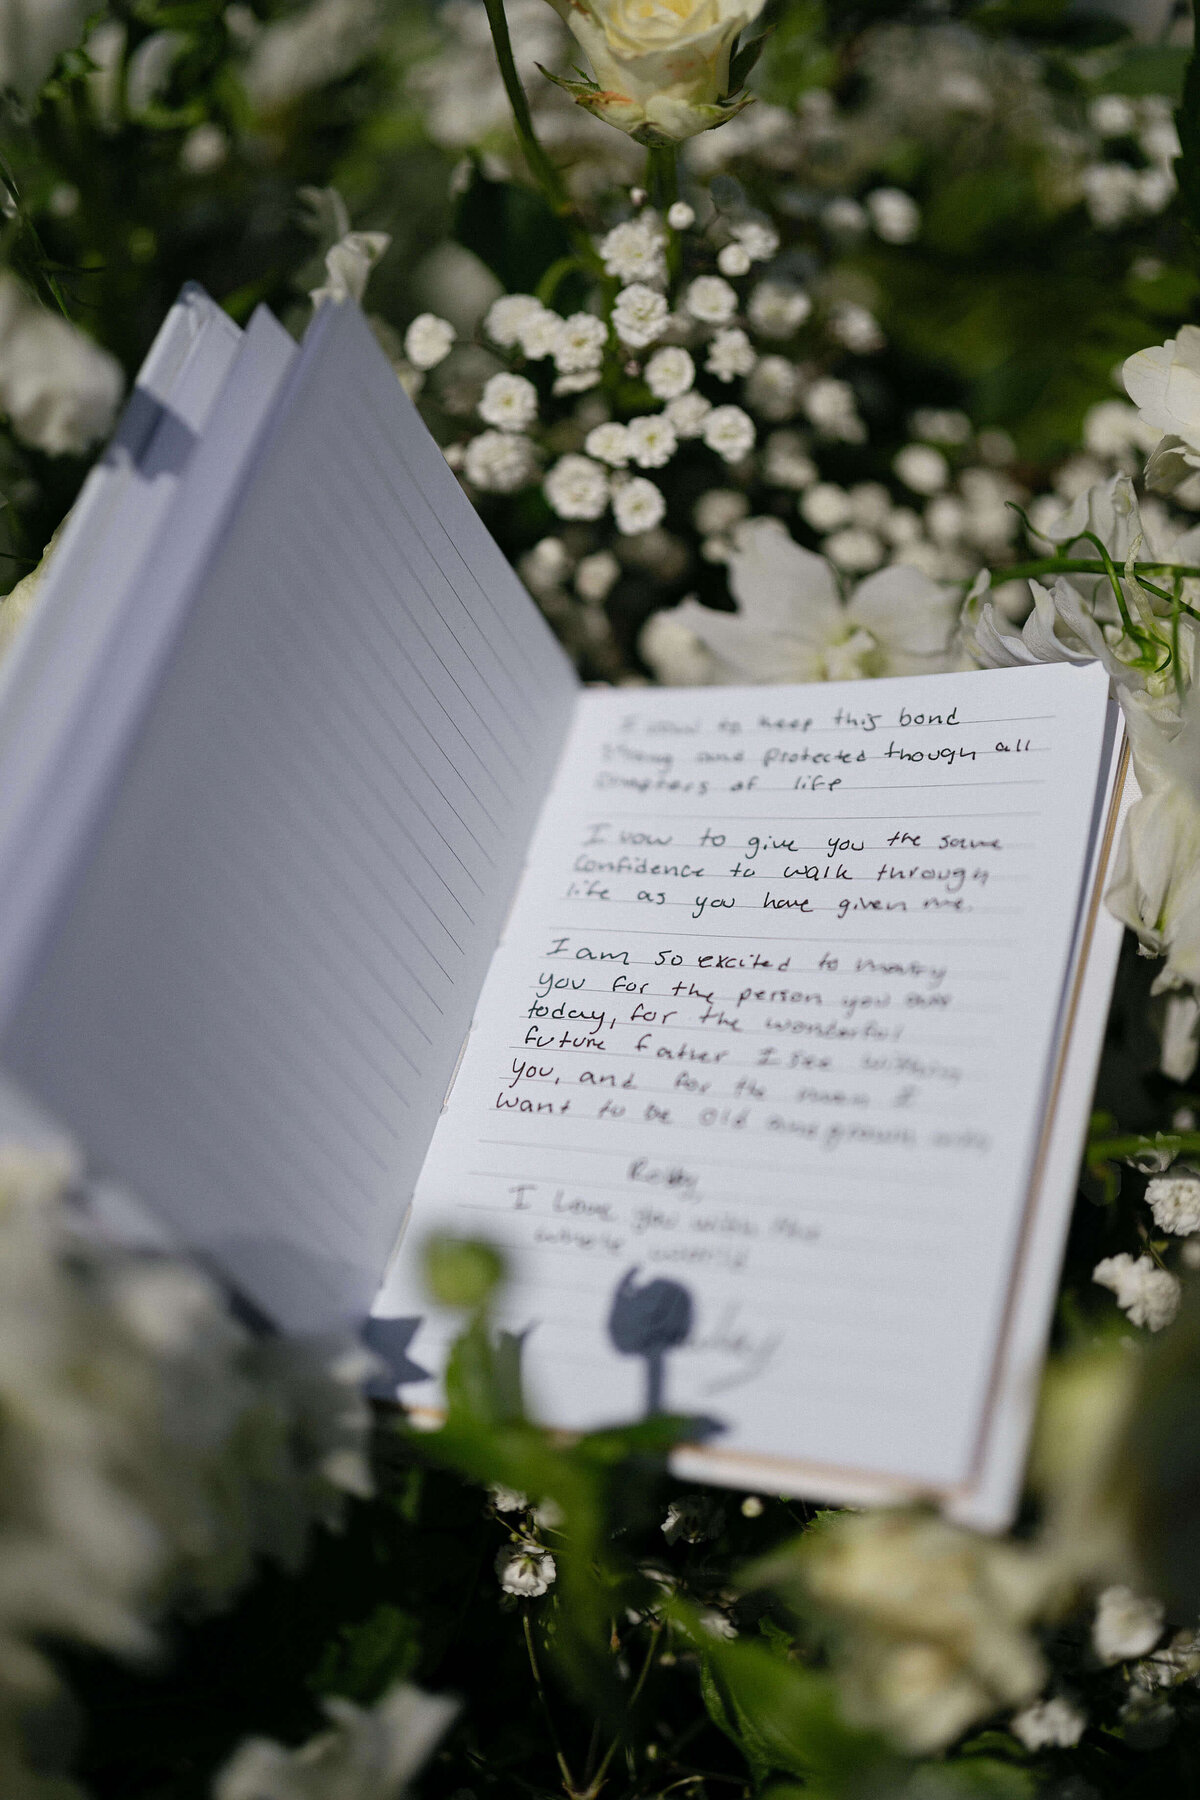 I vow to keep this bond
Strong and protected though all
Chapters of life
I vow to give you the same
Confidence to walk through
life as you have given me.
I am so excited to marry
you for the person you are
today, for the wonderful
future father I see within
you, and for the man I
want to be old and grown with
I Love you with the
whole world